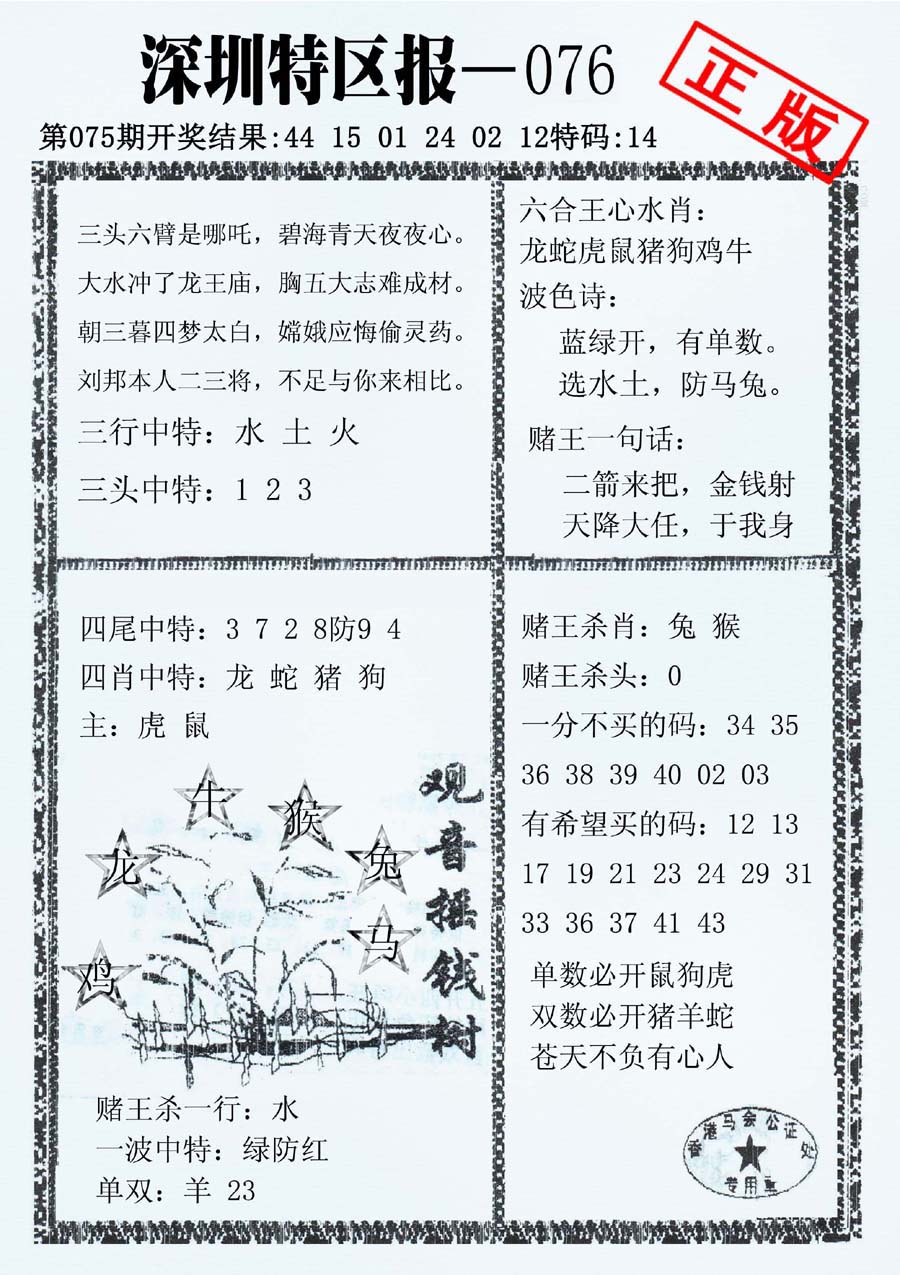 深圳特区报—076
正版
第075期开奖结果:44 15 01 24 02 12特码:14
三头六臂是哪吒，碧海青天夜夜心。
大水冲了龙王庙，胸五大志难成材。
朝三暮四梦太白，嫦娥应悔偷灵药。
刘邦本人二三将，不足与你来相比。
三行中特：水 土 火
三头中特：1 2 3
六合王心水肖：
龙蛇虎鼠猪狗鸡牛
波色诗：
蓝绿开，有单数。
选水土，防马兔。
赌王一句话：
二箭来把，金钱射
天降大任，于我身
四尾中特：3 7 2 8防9 4
四肖中特：龙 蛇 猪 狗
主：虎 鼠
牛
猴
龙
兔
马
鸡
观音摇钱树
赌王杀一行：水
一波中特：绿防红
单双：羊 23
赌王杀肖：兔 猴
赌王杀头：0
一分不买的码：34 35
36 38 39 40 02 03
有希望买的码：12 13
17 19 21 23 24 29 31
33 36 37 41 43
单数必开鼠狗虎
双数必开猪羊蛇
苍天不负有心人
香港马会公证处
专用章